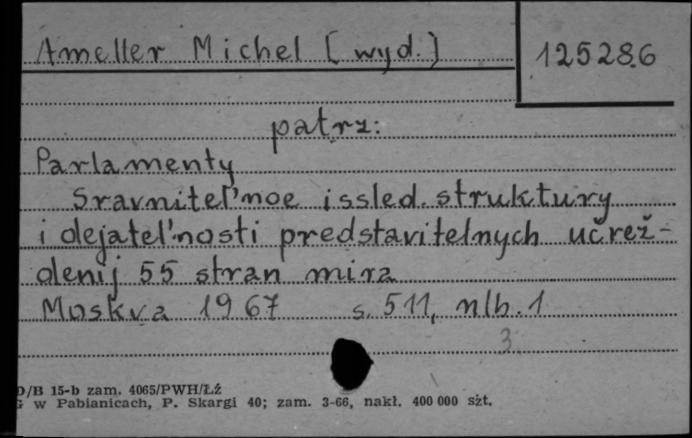 Ameller Michel [wyd.]
125286
patrz:
Parlamenty
Sravnitel'noe issled. struktury
i dejatel'nosti predstavitelnych učrež-
denij 55 stran mira
Moskva 1967 s. 511, nlb. 1
3
D/B 15-b zam. 4065/PWH/ŁŹ
G w Pabianicach, P. Skargi 40; zam. 3-66, nakł. 400 000 szt.